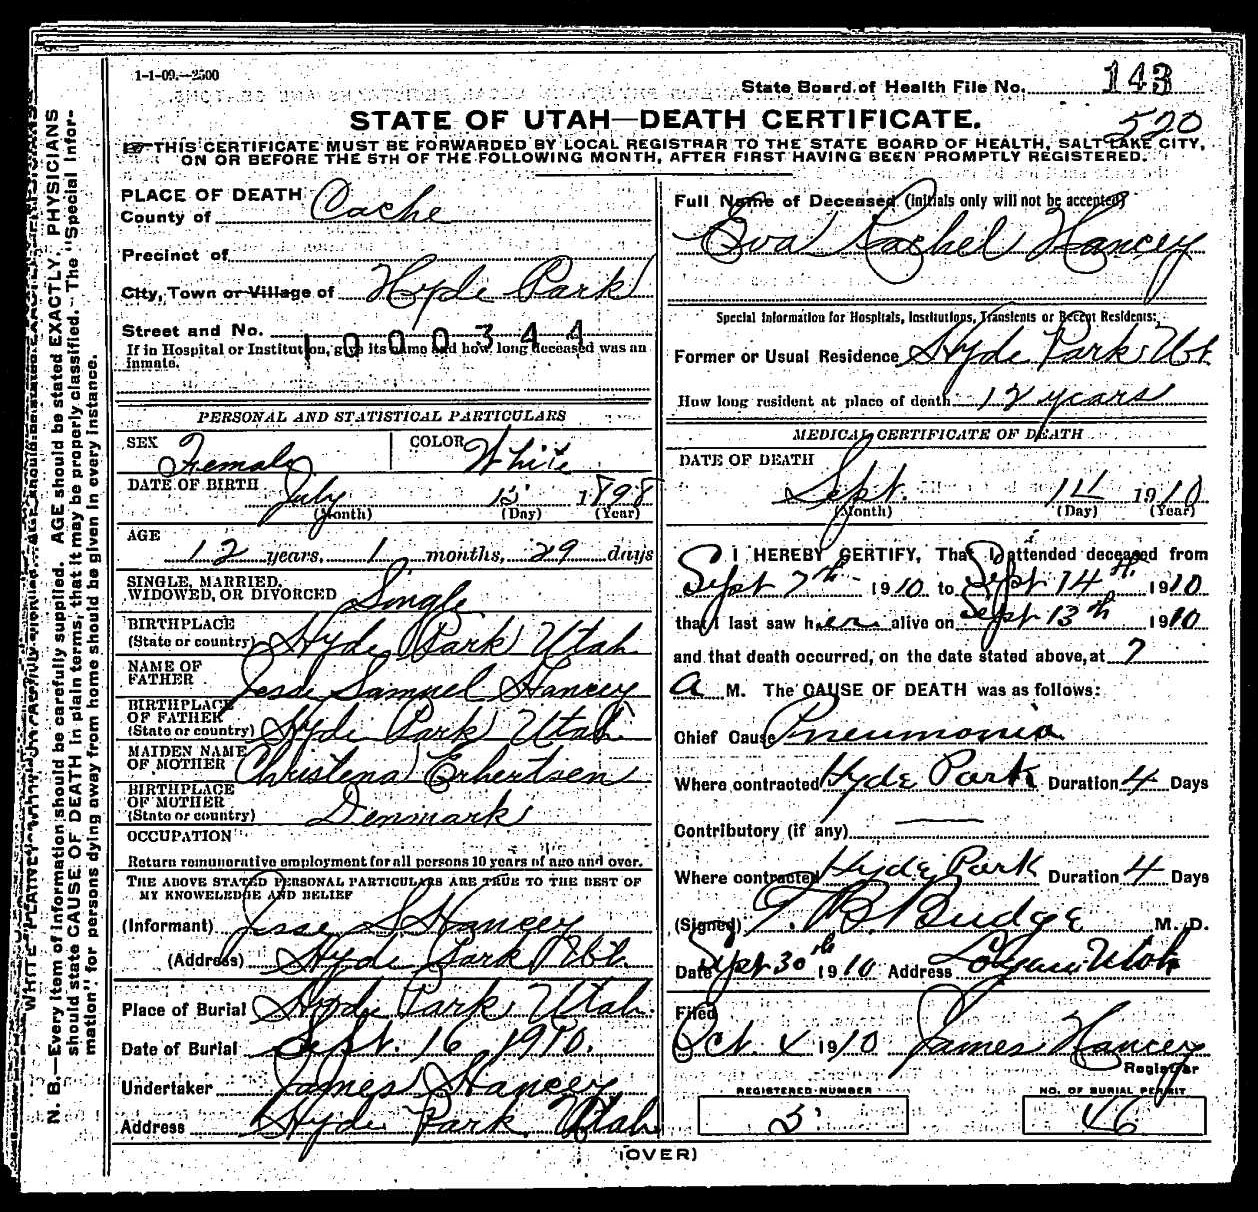 1-1-09.—2500
State Board of Health File No. 143
520
STATE OF UTAH—DEATH CERTIFICATE.
THIS CERTIFICATE MUST BE FORWARDED BY LOCAL REGISTRAR TO THE STATE BOARD OF HEALTH, SALT LAKE CITY,
ON OR BEFORE THE 5TH OF THE FOLLOWING MONTH, AFTER FIRST HAVING BEEN PROMPTLY REGISTERED.
PLACE OF DEATH
County of Cache
Precinct of
City, Town or Village of Hyde Park
Street and No.
1000344
If in Hospital or Institution, give its name and how long deceased was an
inmate.
PERSONAL AND STATISTICAL PARTICULARS
SEX Female COLOR White
DATE OF BIRTH July 15 1898
(Month) (Day) (Year)
AGE
12 years, 1 months, 29 days
SINGLE, MARRIED,
WIDOWED, OR DIVORCED Single
BIRTHPLACE
(State or country) Hyde Park Utah
NAME OF
FATHER Jesse Samuel Hancey
BIRTHPLACE
OF FATHER
(State or country) Hyde Park Utah
MAIDEN NAME
OF MOTHER Christena Erhertsen
BIRTHPLACE
OF MOTHER
(State or country) Denmark
OCCUPATION
Return remunerative employment for all persons 10 years of age and over.
THE ABOVE STATED PERSONAL PARTICULARS ARE TRUE TO THE BEST OF
MY KNOWLEDGE AND BELIEF
(Informant) Jesse S. Hancey
(Address) Hyde Park Ut.
Place of Burial Hyde Park, Utah.
Date of Burial Sept. 16 1910.
Undertaker James Hancey
Address Hyde Park Utah
Full Name of Deceased (Initials only will not be accepted)
Eva Rachel Hancey
Special Information for Hospitals, Institutions, Transients or Recent Residents:
Former or Usual Residence Hyde Park Ut.
How long resident at place of death 12 years
MEDICAL CERTIFICATE OF DEATH
DATE OF DEATH
Sept. 14 1910
(Month) (Day) (Year)
I HEREBY CERTIFY, That I attended deceased from
Sept 7th 1910 to Sept 14th 1910
that I last saw her alive on Sept 13th 1910
and that death occurred, on the date stated above, at 7
a M. The CAUSE OF DEATH was as follows:
Chief Cause Pneumonia
Where contracted Hyde Park Duration 4 Days
Contributory (if any) —
Where contracted Hyde Park Duration 4 Days
(Signed) T. B. Budge M. D.
Date Sept 30th 1910 Address Logan Utah
Filed
Oct. 4 1910 James Hancey
Registrar
REGISTERED NUMBER NO. OF BURIAL PERMIT
5 46
(OVER)
N. B.—Every item of information should be carefully supplied. AGE should be stated EXACTLY. PHYSICIANS
should state CAUSE OF DEATH in plain terms, that it may be properly classified. The "Special Infor-
mation" for persons dying away from home should be given in every instance.